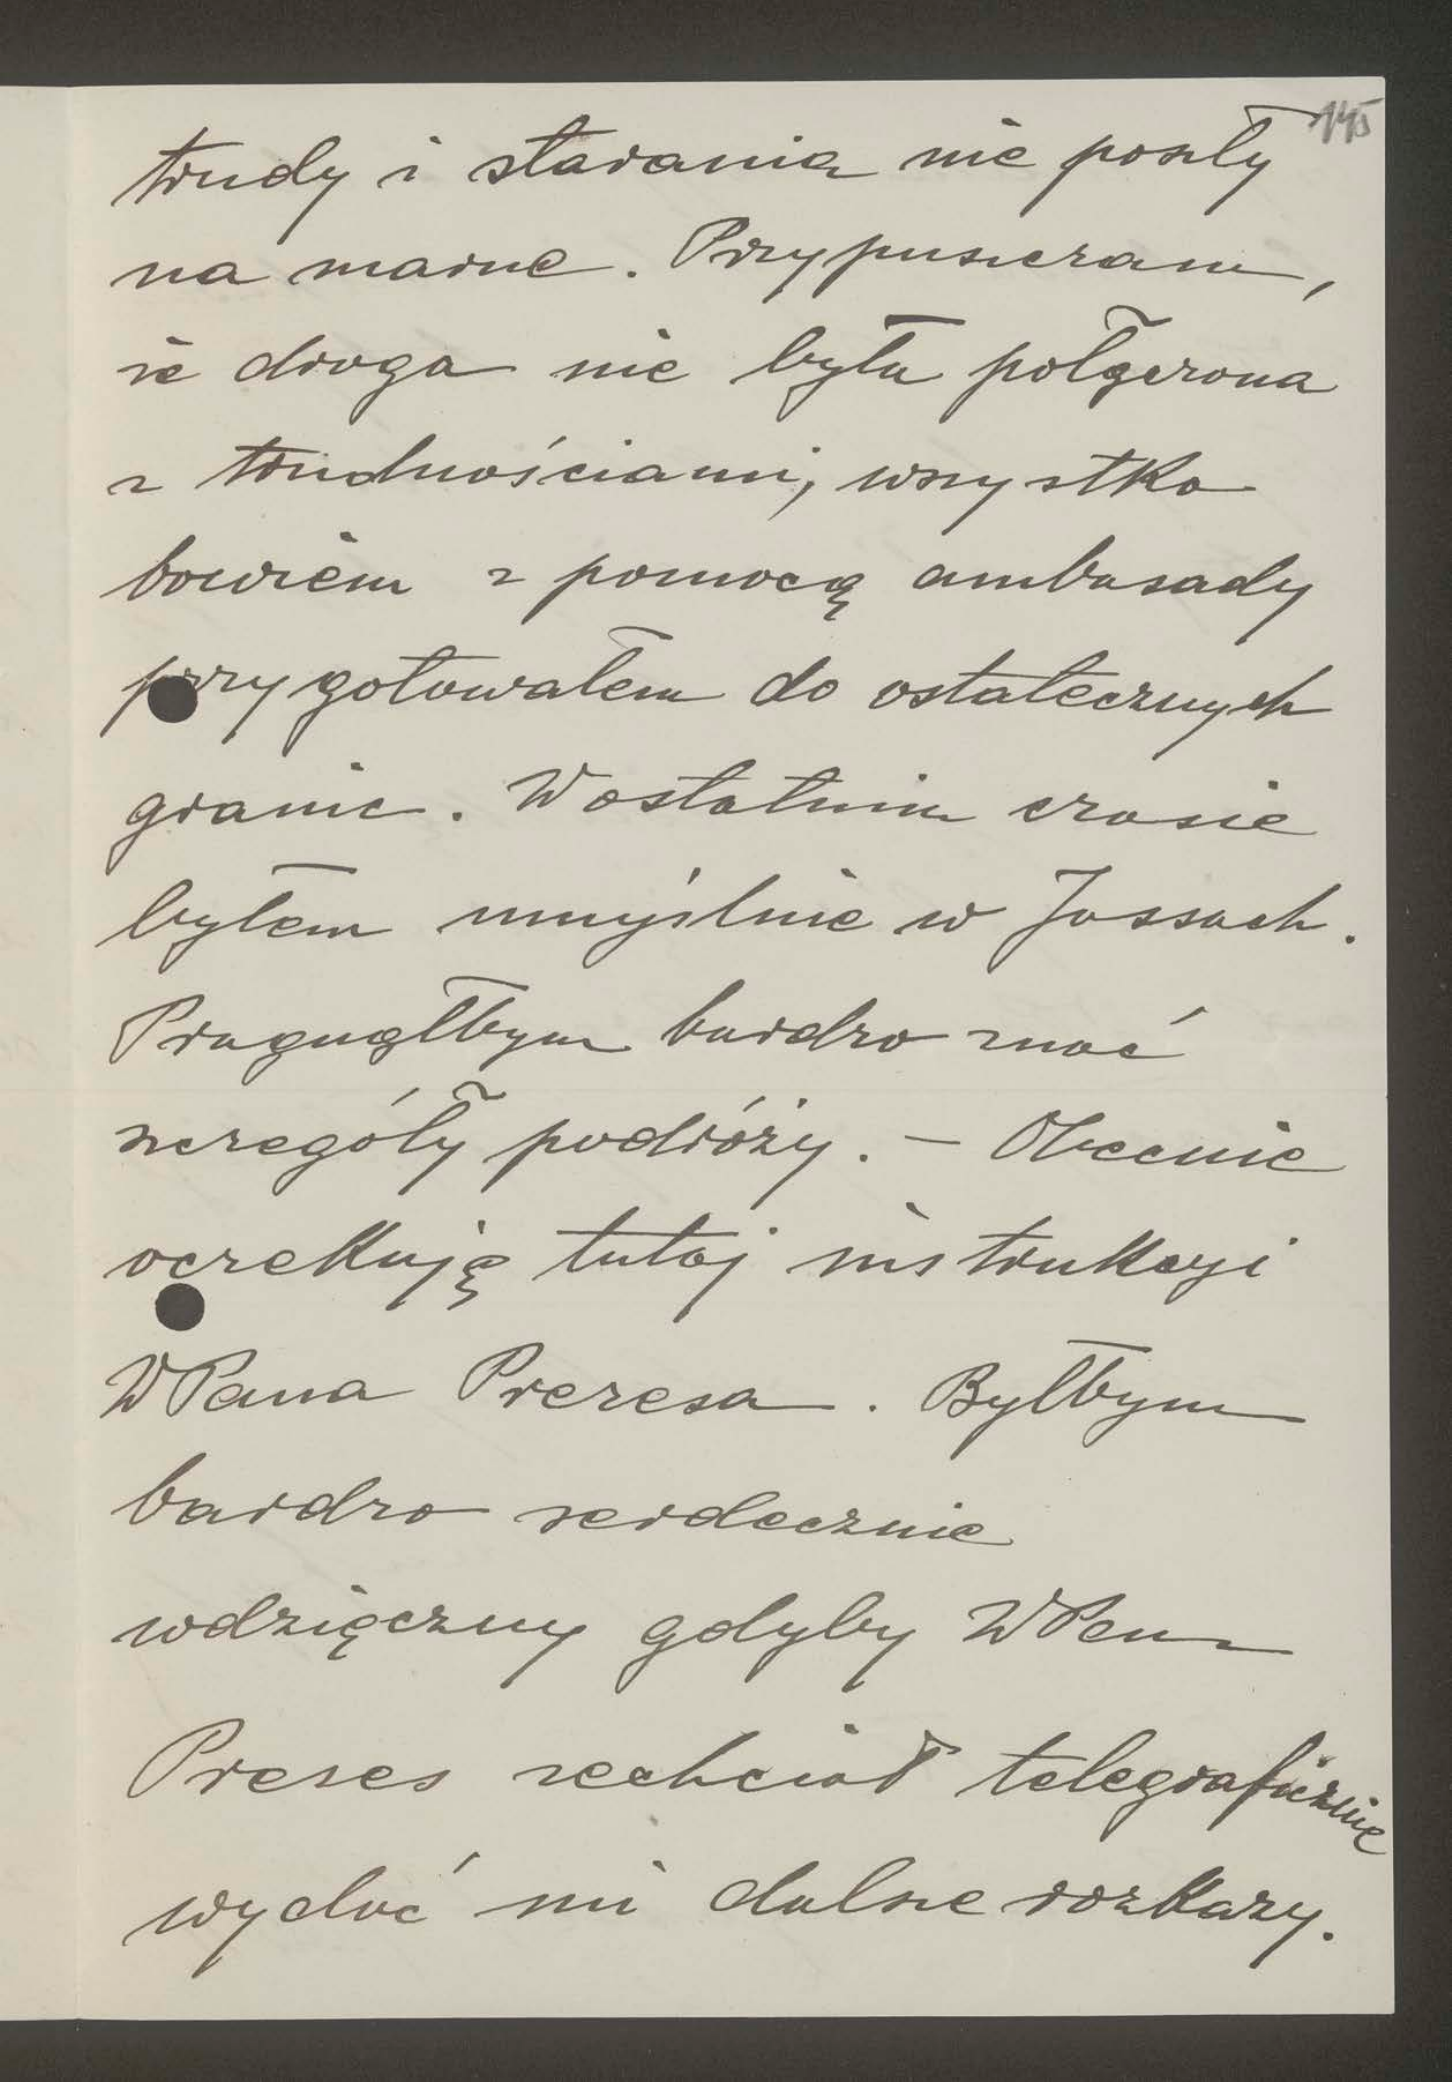 145
trudy i starania nie poszły
na marne. Przypuszczam,
że droga nie była połączona
z trudnościami, wszystko
bowiem z pomocą ambasady
przygotowałem do ostatecznych
granic. W ostatnim czasie
byłem umyślnie w Jassach.
Pragnąłbym bardzo znać
szczegóły podróży. – Obecnie
oczekuję tutaj instrukcyi
WPana Prezesa. Byłbym
bardzo serdecznie
wdzięczny gdyby WPan
Prezes zechciał telegraficznie
wydać mi dalsze rozkazy.